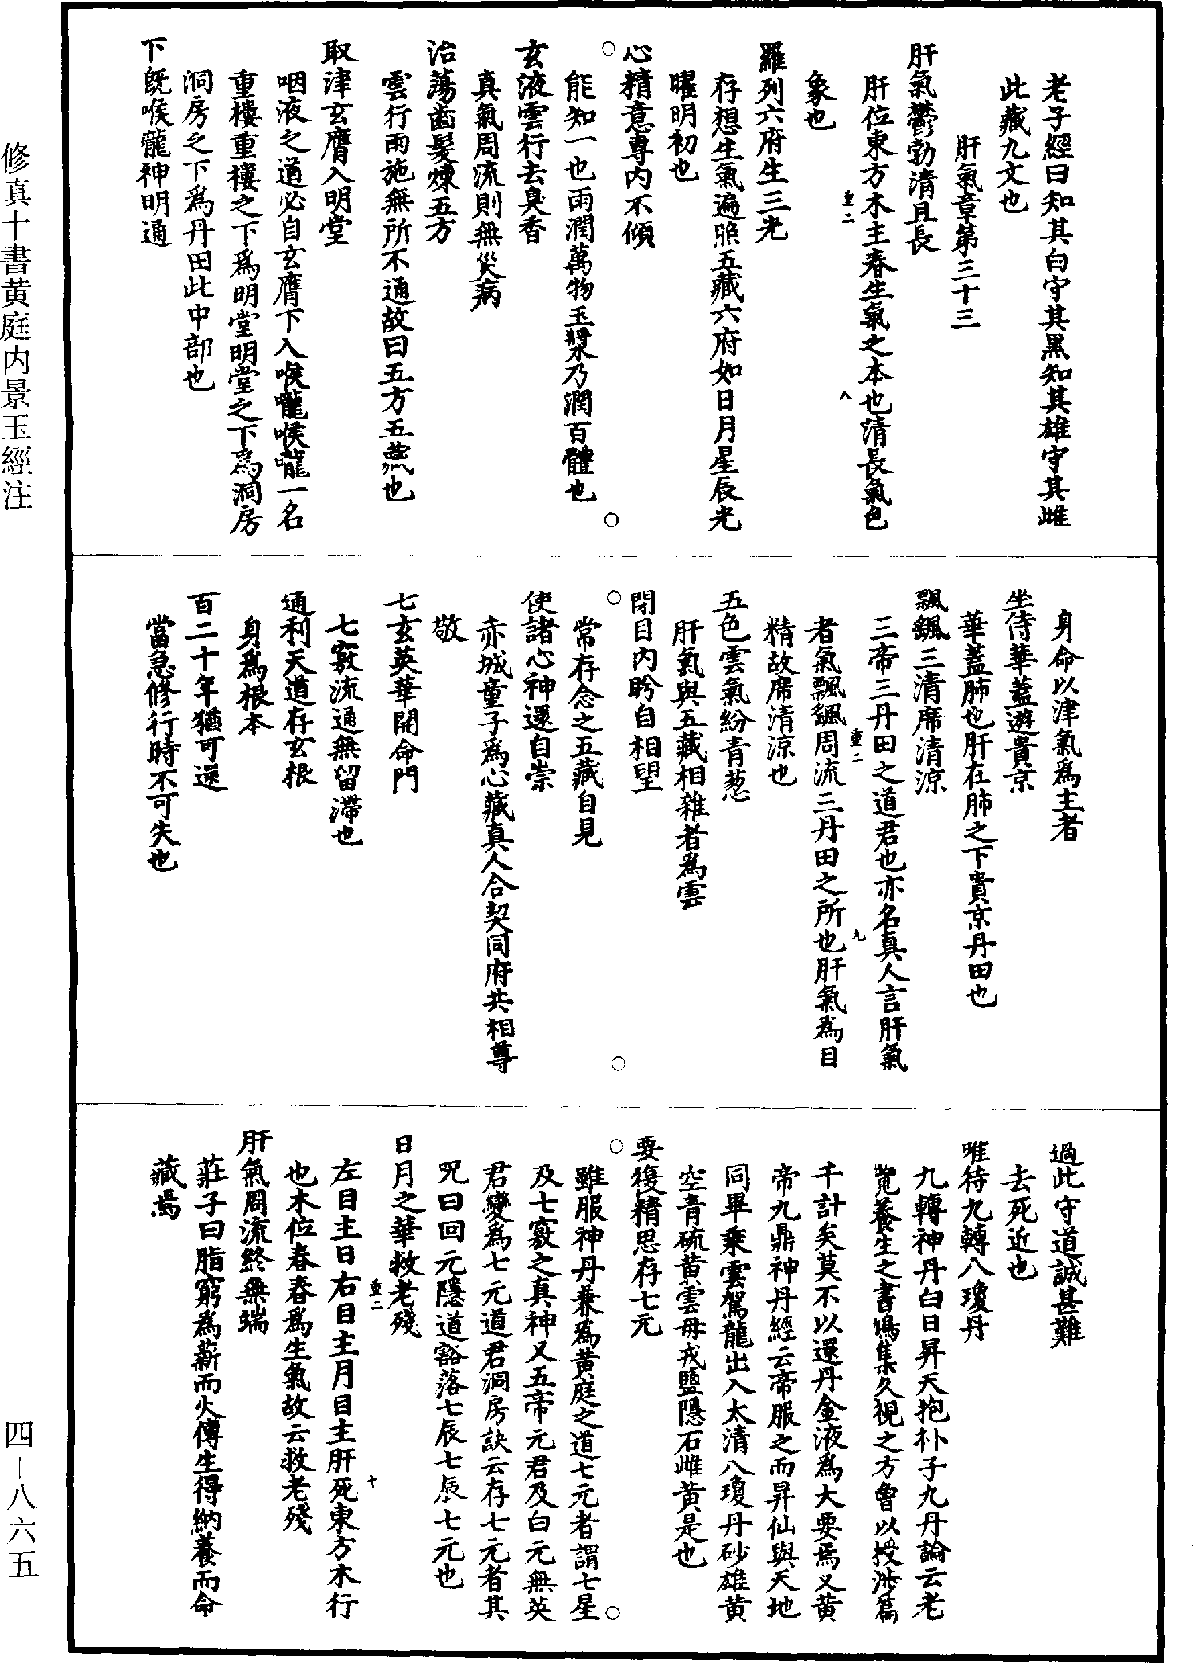 修真十書黄庭内景玉經注
四—八六五
老子經曰知其白守其黑知其雄守其雌
此藏九文也
肝氣章第三十三
肝氣鬱勃清且長
肝位東方木主春生氣之本也清長氣色
象也
羅列六府生三光
存想生氣遍照五藏六府如日月星辰光
曜明初也
心精意專内不傾
能知一也雨潤萬物玉漿乃潤百體也
玄液雲行去臭香
真氣周流則無災病
治蕩齒髮煉五方
雲行雨施無所不通故曰五方五炁也
取津玄膺入明堂
咽液之道必自玄膺下入喉嚨喉嚨一名
重樓重樓之下爲明堂明堂之下爲洞房
洞房之下爲丹田此中部也
下既喉嚨神明通
身命以津氣爲主者
坐侍華蓋遊貴京
華蓋肺也肝在肺之下貴京丹田也
飄颻三清席清涼
三帝三丹田之道君也亦名真人言肝氣
者氣飄颻周流三丹田之所也肝氣爲目
精故席清涼也
五色雲氣紛青葱
肝氣與五藏相雜者爲雲
閉目内眄自相望
常存念之五藏自見
使諸心神還自崇
赤城童子爲心藏真人合契同府共相尊
敬
七玄英華開命門
七竅流通無留滯也
通利天道存玄根
身爲根本
百二十年猶可還
當急修行時不可失也
過此守道誠甚難
去死近也
唯待九轉八瓊丹
九轉神丹白日昇天抱朴子九丹論云老
覽養生之書鳩集久視之方曾以授涉篇
千計矣莫不以還丹金液爲大要焉又黄
帝九鼎神丹經云帝服之而昇仙與天地
同畢乘雲駕龍出入太清八瓊丹砂雄黄
空青硫黄雲母戎鹽隱石雌黄是也
要復精思存七元
雖服神丹兼爲黄庭之道七元者謂七星
及七竅之真神又五帝元君及白元無英
君變爲七元道君洞房訣云存七元者其
咒曰回元隱道豁落七辰七辰七元也
日月之華救老殘
左目主日右目主月目主肝死東方木行
也木位春春爲生氣故云救老殘
肝氣周流終無端
莊子曰脂窮爲薪而火傳生得納養而命
藏焉
重二
八
重二
九
重二
十